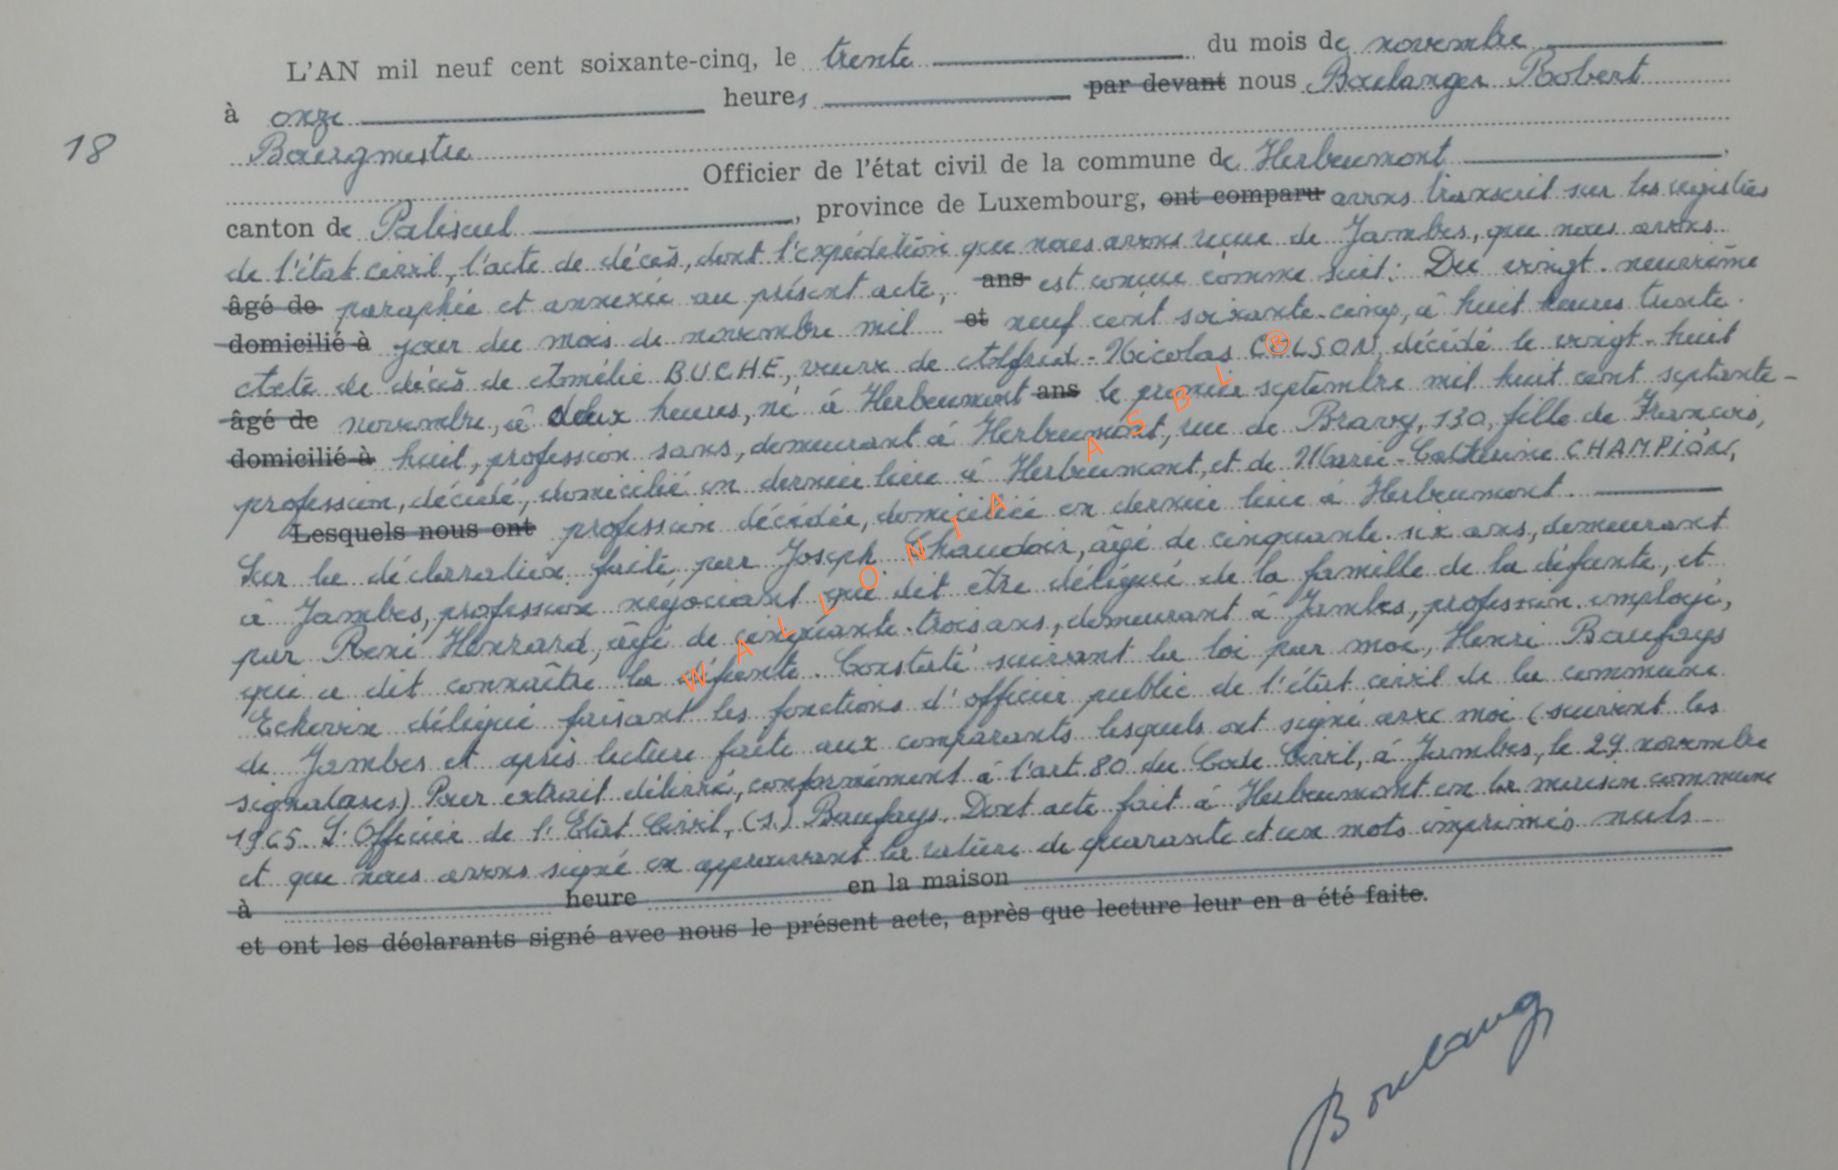 L'AN mil neuf cent soixante-cinq, le trente du mois de novembre
à onze heures par devant nous Boulanger Robert
18 Bourgmestre
Officier de l'état civil de la commune de Herbeumont
canton de Paliseul, province de Luxembourg, ont comparu avons transcrit sur les registres
de l'état civil, l'acte de décès, dont l'expédition que nous avons reçue de Jambes, que nous avons
âgé de paraphée et annexée au présent acte, ans est conçue comme suit: Du vingt-neuvième
domicilié à jour du mois de novembre mil et neuf cent soixante-cinq, à huit heures trente.
Acte de décès de Amélie BUCHE, veuve de Alfred-Nicolas COLSON, décédé le vingt-huit
âgé de novembre, à deux heures, né à Herbeumont ans le premier septembre mil huit cent septante-
domicilié à huit, profession sans, demeurant à Herbeumont, rue de Bravy, 130, fille de François,
profession, décédé, domicilié en dernier lieu à Herbeumont, et de Marie-Catherine CHAMPION,
Lesquels nous ont profession décédée, domiciliée en dernier lieu à Herbeumont.
Sur la déclaration faite par Joseph Chaudoir, âgé de cinquante-six ans, demeurant
à Jambes, profession négociant qui dit être délégué de la famille de la défunte, et
par René Honrard, âgé de cinquante-trois ans, demeurant à Jambes, profession employé,
qui a dit connaître la défunte. Constaté suivant la loi par moi, Henri Baufays
Echevin délégué faisant les fonctions d'officier public de l'état civil de la commune
de Jambes et après lecture faite aux comparants lesquels ont signé avec moi (suivent les
signatures) Pour extrait délivré, conformément à l'art 80 du Code Civil, à Jambes, le 29 novembre
1965. L'Officier de l'Etat Civil, (s.) Baufays. Dont acte fait à Herbeumont en la maison commune
et que nous avons signé en approuvant la rature de quarante et un mots imprimés nuls
à heure en la maison
et ont les déclarants signé avec nous le présent acte, après que lecture leur en a été faite.
Boulang
WALLONIA ASBL ®